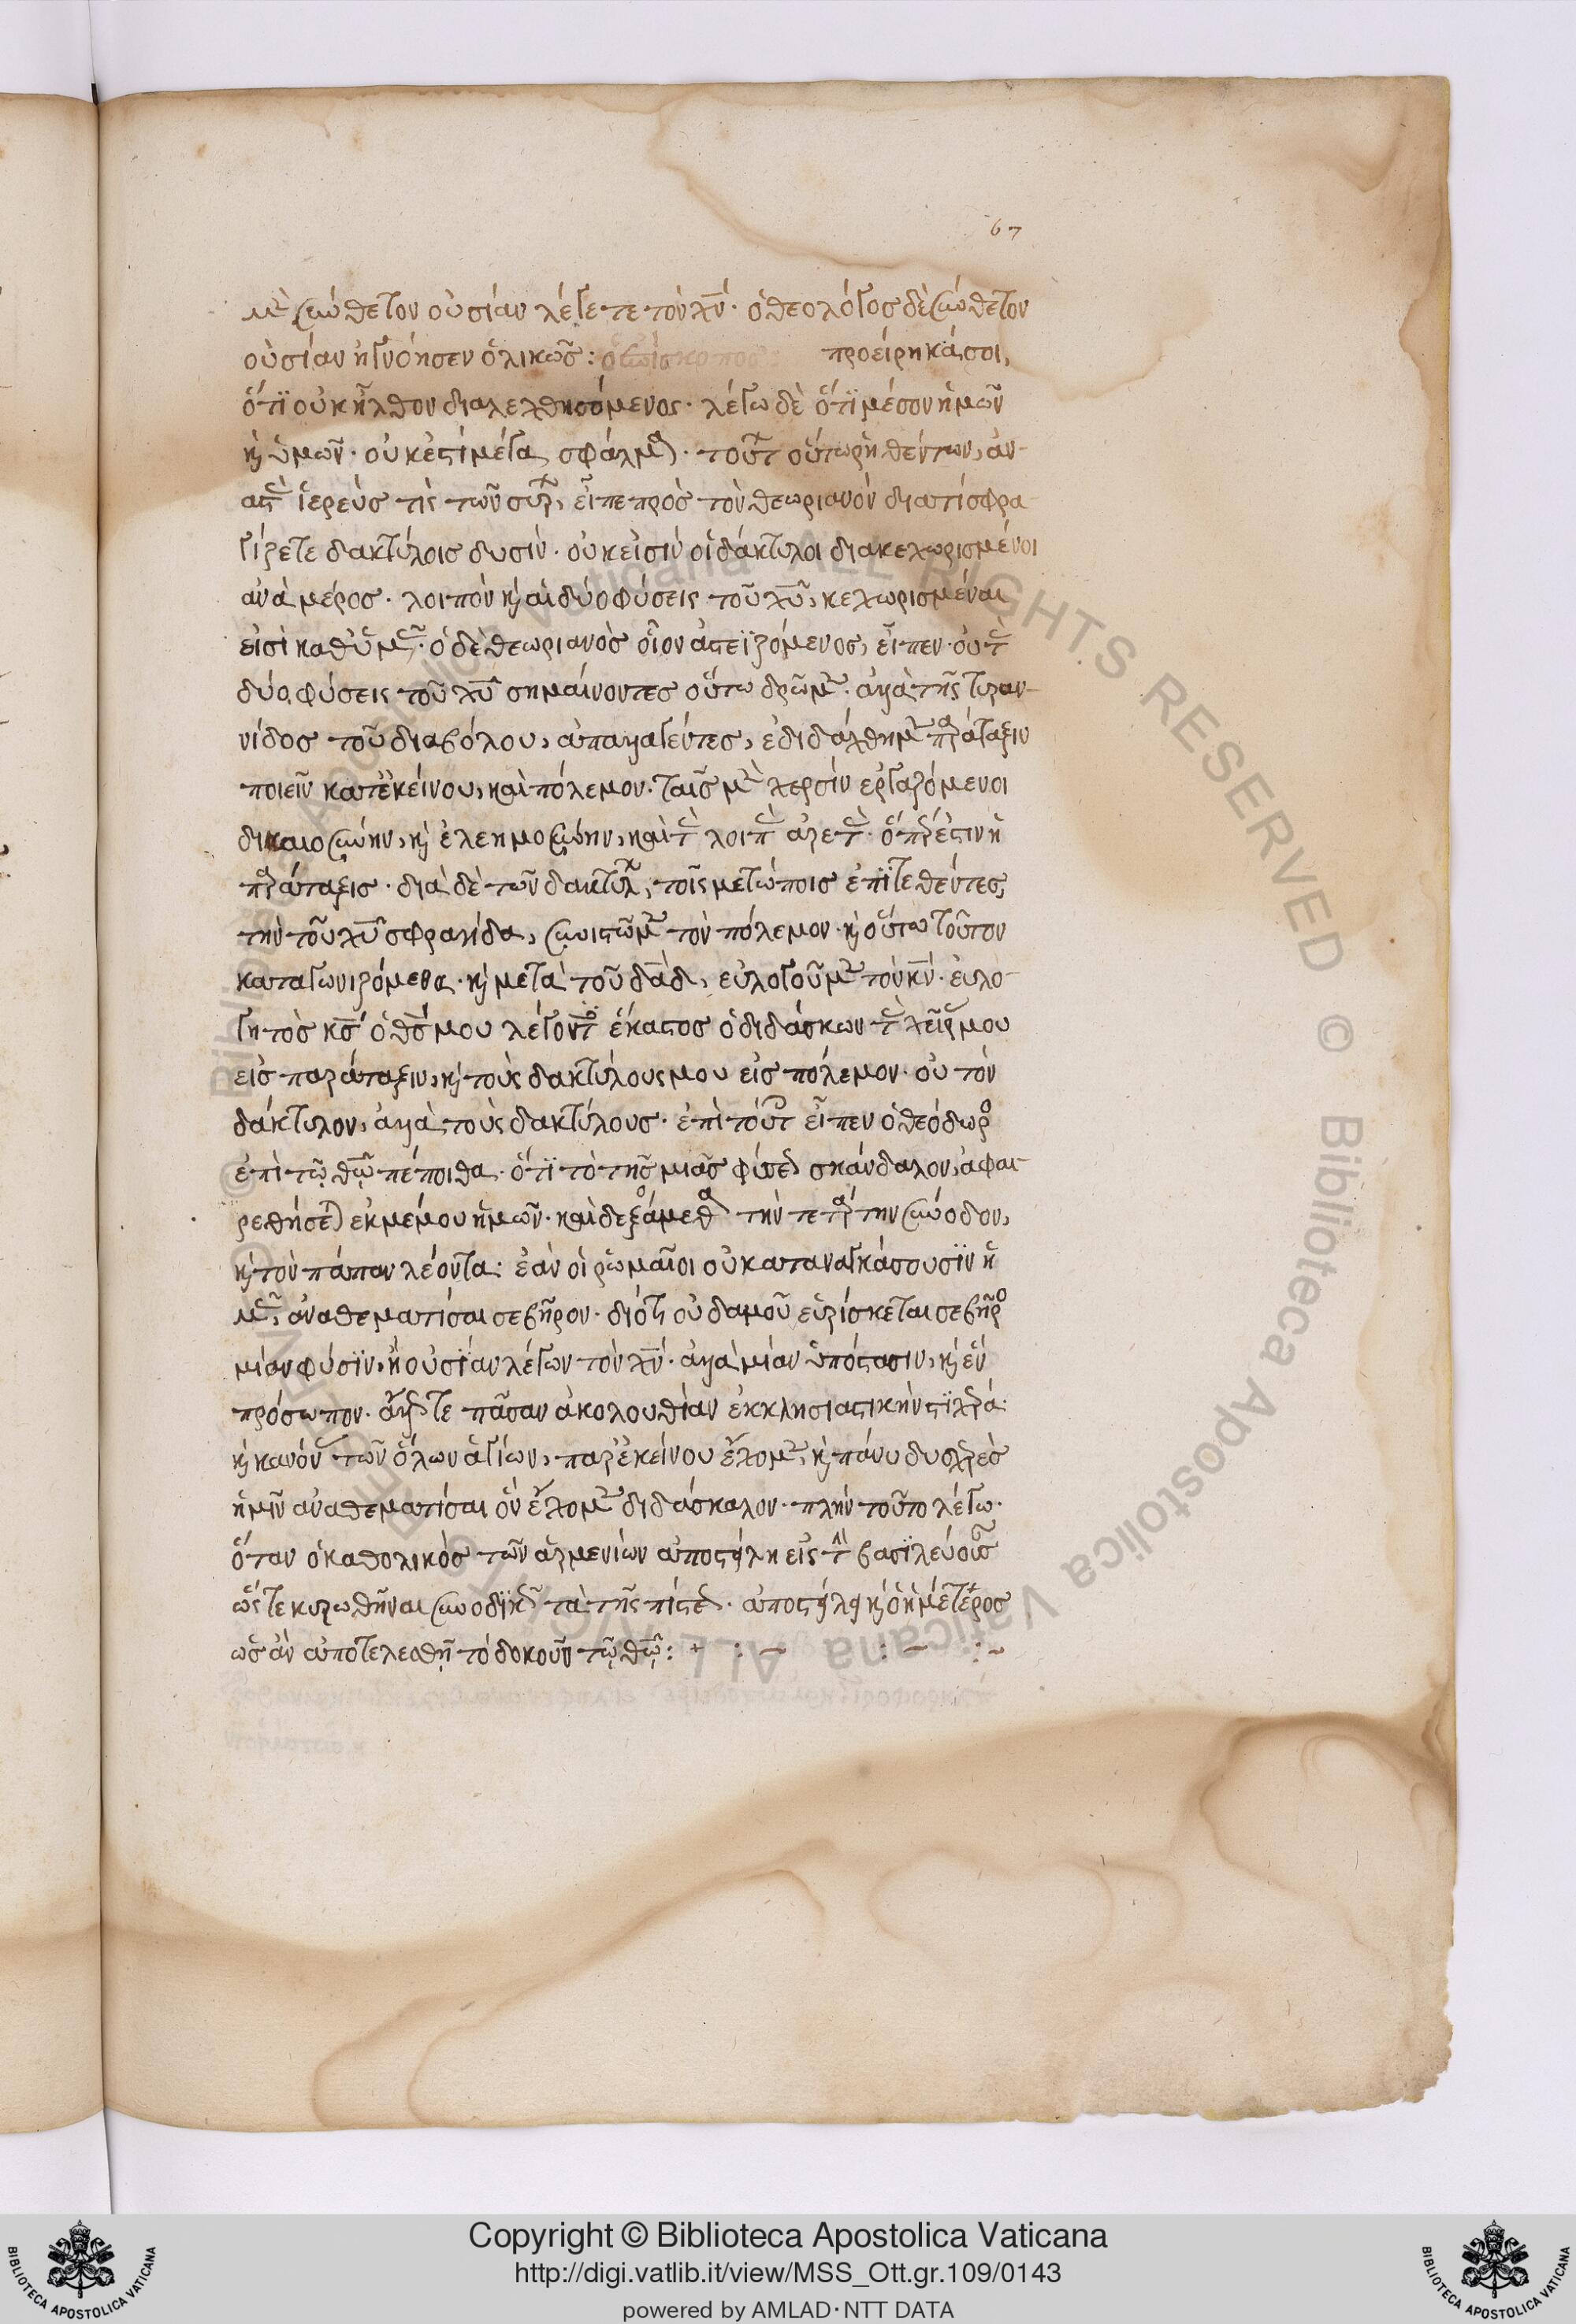 67
μὲν σύνθετον οὐσίαν λέγετε τὸν χν. ὁ θεολόγος δὲ σύνθετον
οὐσίαν ἠγνόησεν ὁλικῶς: ὁ ἐπίσκοπος: προείρηκά σοι,
ὅτι οὐκ ἦλθον διαλεχθησόμενος. λέγω δὲ ὅτι μέσον ἡμῶν
κ ὑμῶν. οὐκ ἔστι μέγα σφάλμα. τούτων οὕτω ῥηθέντων, ἀν-
αστὰς ἱερεύς τις τῶν σύρων, εἶπε πρὸς τὸν θεωριανὸν διατί σφρα
γίζετε δακτύλοις δυσίν. οὐκ εἰσὶν οἱ δάκτυλοι διακεχωρισμένοι
ἀνὰ μέρος. λοιπὸν κ αἱ δύο φύσεις τοῦ χυ, κεχωρισμέναι
εἰσὶ καθ' ὑμᾶς. ὁ δὲ θεωριανὸς οἷον ἀστεϊζόμενος, εἶπεν. οὐ τὰς
δύο φύσεις τοῦ χυ σημαίνοντες οὕτω δρῶμεν. ἀλλὰ τῆς τυραν-
νίδος τοῦ διαβόλου, ἀπαλλαγέντες, ἐδιδάχθημεν παράταξιν
ποιεῖν κατ' ἐκείνου, καὶ πόλεμον. ταῖς μὲν χερσὶν ἐργαζόμενοι
δικαιοσύνην, κ ἐλεημοσύνην, καὶ τὰς λοιπὰς ἀρετάς. ὅπερ ἐστὶν ἡ
παράταξις. διὰ δὲ τῶν δακτύλων, τοῖς μετώποις ἐπιτεθέντες,
τὴν τοῦ χυ σφραγίδα, συνιστῶμεν τὸν πόλεμον. κ οὕτω τοῦτον
καταγωνιζόμεθα. κ μετὰ τοῦ δαδ, εὐλογοῦμεν τὸν κν. εὐλο-
γητὸς κς ὁ θς μου λέγοντες ἕκαστος ὁ διδάσκων τὰς χεῖράς μου
εἰς παράταξιν, κ τοὺς δακτύλους μου εἰς πόλεμον. οὐ τὸν
δάκτυλον, ἀλλὰ τοὺς δακτύλους. ἐπὶ τούτοις εἶπεν ὁ θεόδωρος
ἐπὶ τῷ θῷ πέποιθα. ὅτι τὸ τῆς μιᾶς φύσεως σκάνδαλον, ἀφαι-
ρεθήσεται ἐκ μέσου ἡμῶν. καὶ δεξόμεθα τὴν τετάρτην σύνοδον,
κ τὸν πάπαν λέοντα: ἐὰν οἱ ῥωμαῖοι οὐ καταναγκάσουσιν ἡ
μᾶς, ἀναθεματίσαι σεβῆρον. διότι οὐδαμοῦ εὑρίσκεται σεβῆρος
μίαν φύσιν, ἢ οὐσίαν λέγων τὸν χν. ἀλλὰ μίαν ὑπόστασιν, κ ἓν
πρόσωπον. ἄλλως τε πᾶσαν ἀκολουθίαν ἐκκλησιαστικὴν στιχηρά:
κ κανόνας τῶν ὅλων ἁγίων, παρ' ἐκείνου ἔχομεν, κ πάνυ δυσχερὲς
ἡμῖν ἀναθεματίσαι ὃν ἔχομεν διδάσκαλον. πλὴν τοῦτο λέγω.
ὅταν ὁ καθολικὸς τῶν ἀρμενίων ἀποστείλῃ εἰς τὴν βασιλεύουσαν
ὥστε κυρωθῆναι συνοδικῶς τὰ τῆς πίστεως. ἀποστείλῃ κ ὁ ἡμέτερος
ὡς ἂν ἀποτελεσθῇ τὸ δοκοῦν τῷ θῷ: + : ~ : ~ : ~
Copyright © Biblioteca Apostolica Vaticana
http://digi.vatlib.it/view/MSS_Ott.gr.109/0143
powered by AMLAD·NTT DATA
BIBLIOTECA APOSTOLICA VATICANA
BIBLIOTECA APOSTOLICA VATICANA